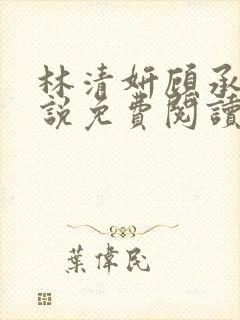 林清妍顾承
說免費閱讀
葉偉民